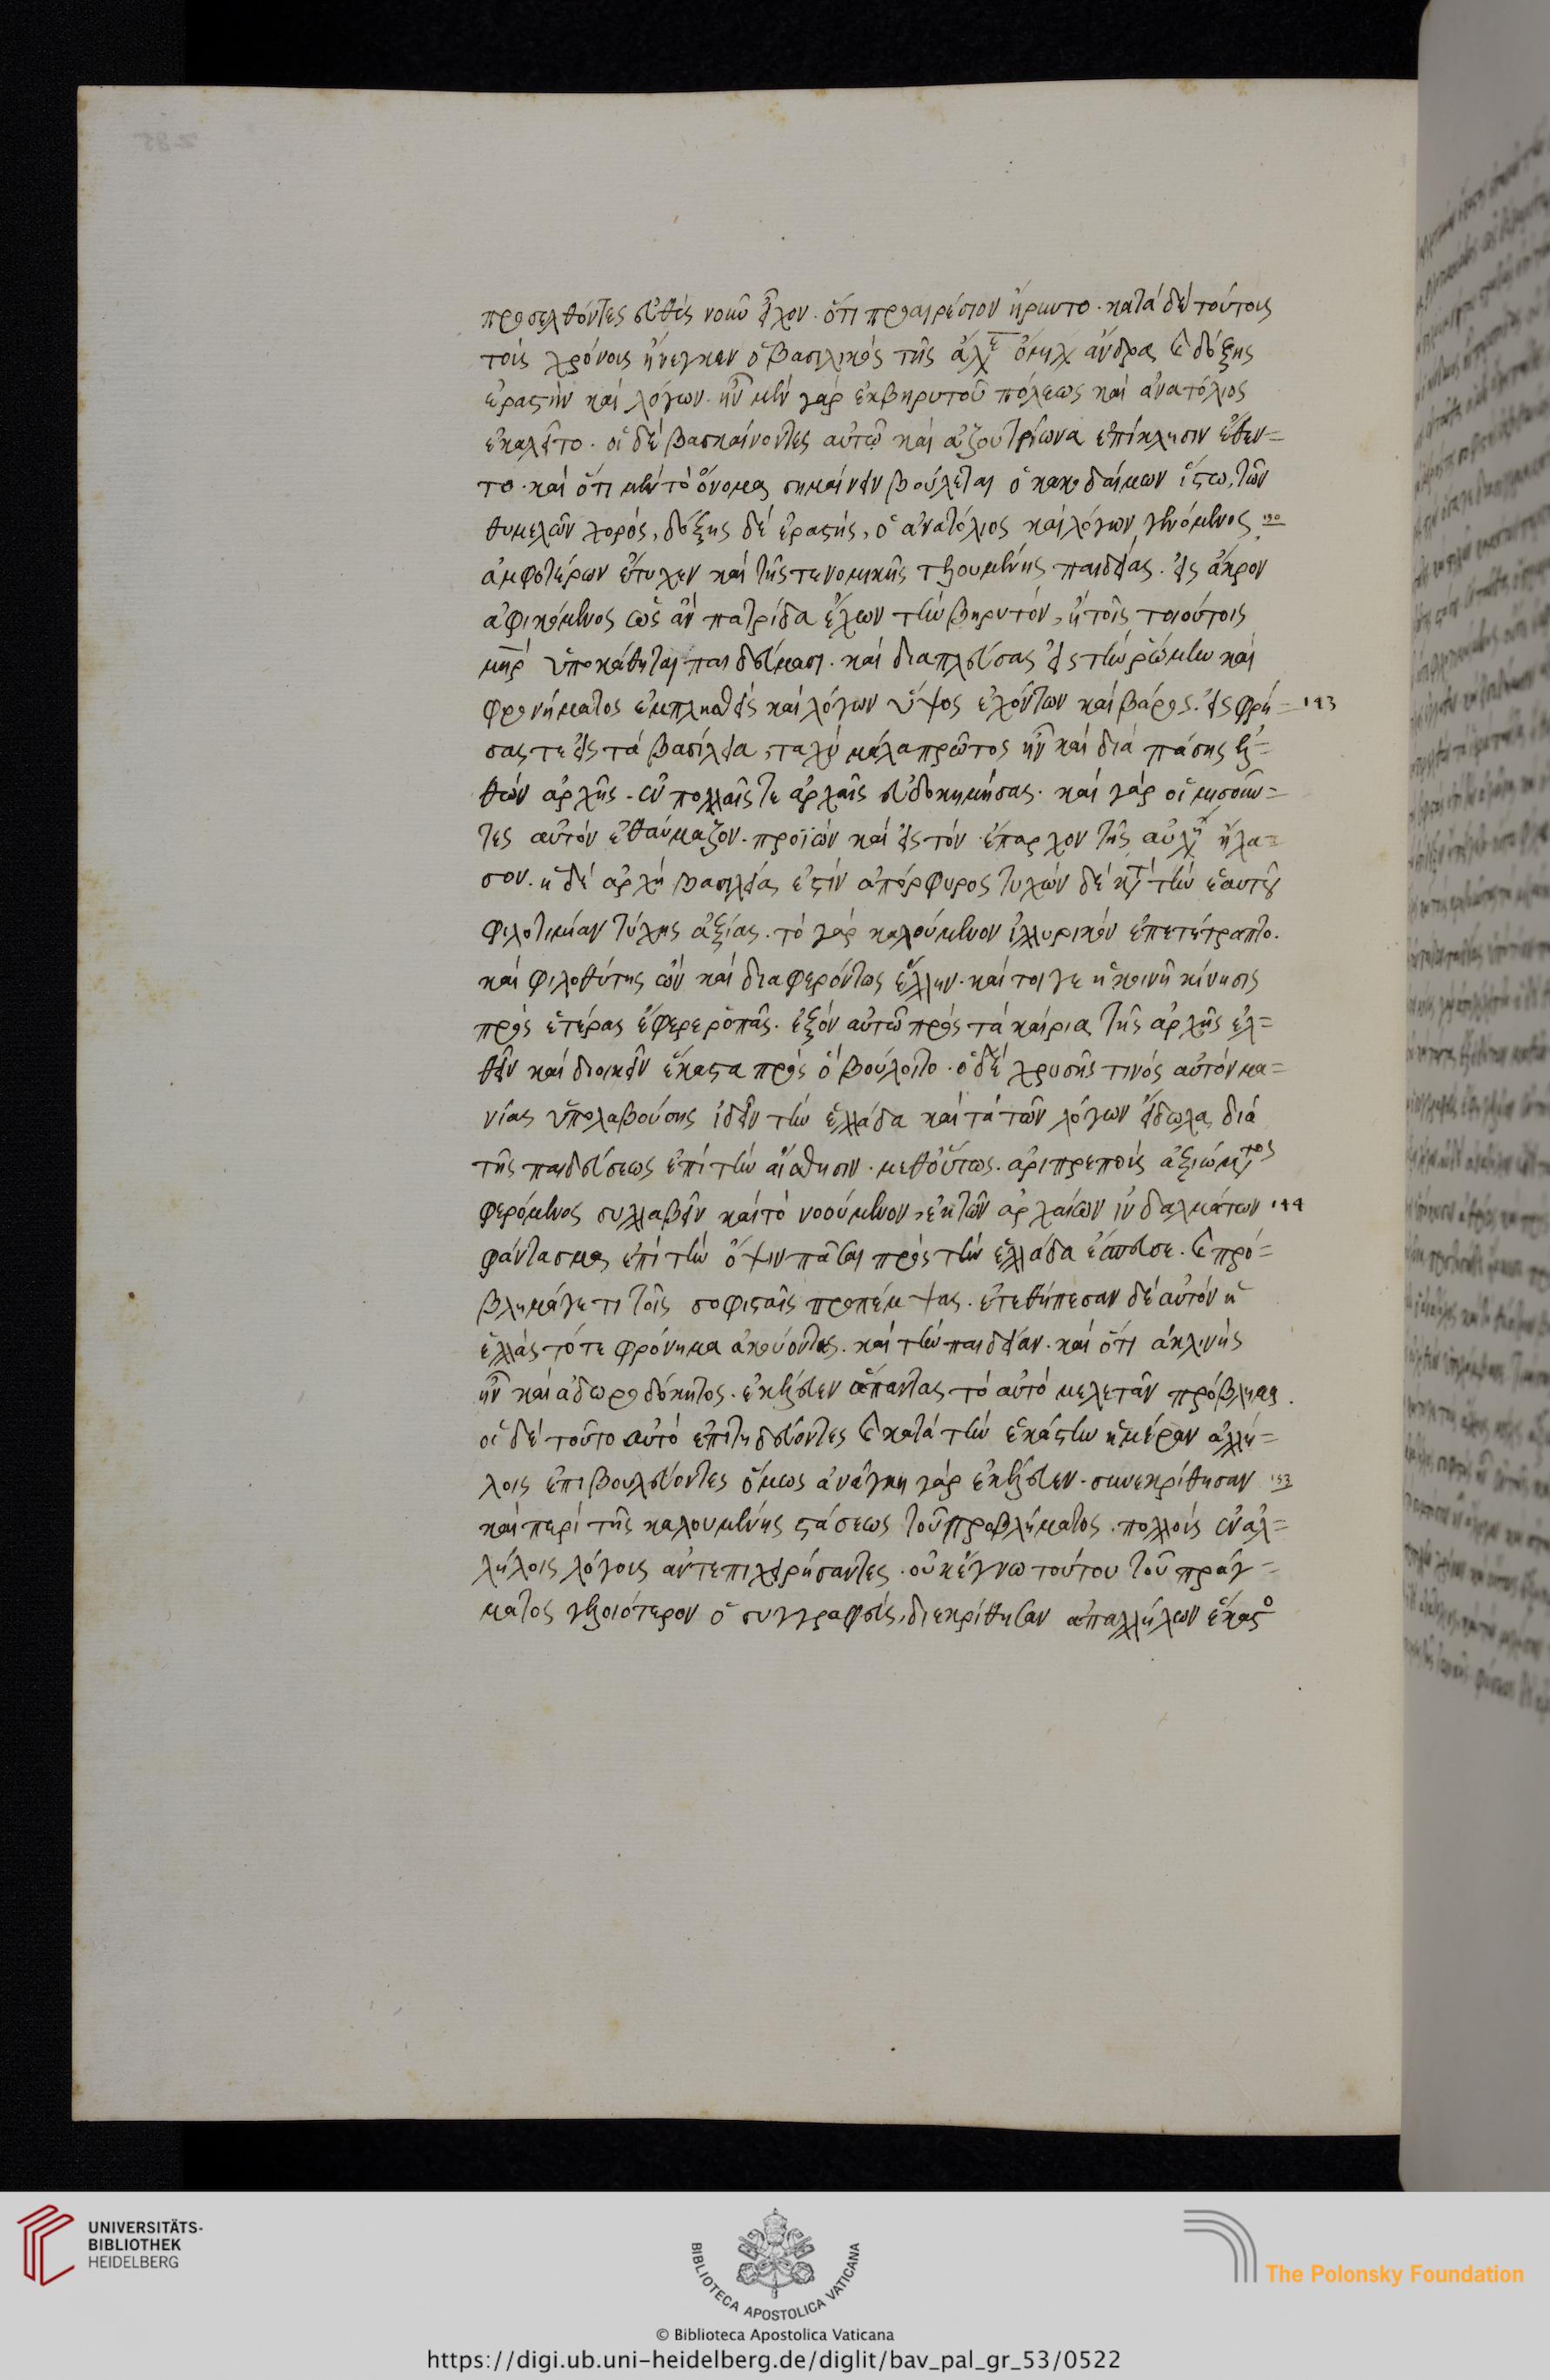 προσελθόντες εὐθὺς νοῦν εἶχον. ὅτι προαιρέσιον ᾕρηντο. κατὰ δὲ τούτοις
τοῖς χρόνοις ἤνεγκεν ὁ βασιλικὸς τῆς ἀρχ ὅμιλ ἄνδρας καὶ δόξης
ἐραστὴν καὶ λόγων. ἦν μὲν γὰρ ἐκ βηρυτοῦ πόλεως καὶ ἀνατόλιος
ἐκαλεῖτο. οἱ δὲ βασκαίνοντες αὐτῷ καὶ ἀζουτρίωνα ἐπίκλησιν ἔθεν=
το. καὶ ὅτι μὲν τὸ ὄνομα σημαίνειν βούλεται ὁ κακοδαίμων ἴστω, τῶν
θυμελῶν χορός, δόξης δὲ ἐραστής, ὁ ἀνατόλιος καὶ λόγων γενόμενος 190
ἀμφοτέρων ἔτυχεν καὶ τῆς τε νομικῆς τεξουμένης παιδείας. εἰς ἄκρον
ἀφικόμενος ὡς ἂν πατρίδα ἔχων τὴν βηρυτόν, ἣ τοῖς τοιούτοις
μηρ ὑποκάθηται παιδεύμασι. καὶ διαπλεύσας εἰς τὴν ῥώμην καὶ
φρονήματος ἐμπλησθεὶς καὶ λόγων ὕψος ἐχόντων καὶ βάρος. εἰς φρή= 193
σας τε εἰς τὰ βασίλεια, ταχὺ μάλα πρῶτος ἦν καὶ διὰ πάσης ἐξ=
θὼν ἀρχῆς. ἐν πολλαῖς τε ἀρχαῖς εὐδοκιμήσας. καὶ γὰρ οἱ μισοῦν=
τες αὐτὸν ἐθαύμαζον. προϊὼν καὶ εἰς τὸν ἔπαρχον τῆς αὐλῆ ἤλα=
σον. ἡ δὲ ἀρχὴ βασιλεία ἐστὶν ἀπόρφυρος τυχὼν δὲ κατὰ τὴν ἑαυτοῦ
φιλοτιμίαν τύχης ἀξίας. τὸ γὰρ καλούμενον ἰλλυρικὸν ἐπετέτραπτο.
καὶ φιλοθύτης ὢν καὶ διαφερόντως ἕλλην. καί τοι γε ἡ κοινὴ κίνησις
πρὸς ἑτέρας ἔφερε ῥοπάς. ἐξὸν αὐτῷ πρὸς τὰ καίρια τῆς ἀρχῆς ἐλ=
θεῖν καὶ διοικεῖν ἕκαστα πρὸς ὃ βούλοιτο. ὁ δὲ χρυσῆς τινὸς αὐτὸν μα=
νίας ὑπολαβούσης ἰδεῖν τὴν ἑλλάδα καὶ τὰ τῶν λόγων εἴδωλα διὰ
τῆς παιδεύσεως ἐπὶ τὴν αἴσθησιν. μεθ οὕτως. ἀριπρεποῦς ἀξιώματος
φερόμενος συλλαβεῖν καὶ τὸ νοούμενον, ἐκ τῶν ἀρχαίων ἰνδαλμάτων 144
φάντασμα ἐπὶ τὴν ὄψιν πᾶσαι πρὸς τὴν ἑλλάδα ἔσπευσε. καὶ πρό=
βλημά γε τι τοῖς σοφισταῖς προπέμψας. ἐτεθήπεσαν δὲ αὐτὸν ἡ
ἑλλὰς τό τε φρόνημα ἀκούοντες. καὶ τὴν παιδείαν. καὶ ὅτι ἀκλινὴς
ἦν καὶ ἀδωροδόκητος. ἐκέλευεν ἅπαντας τὸ αὐτὸ μελετᾶν πρόβλημα.
οἱ δὲ τοῦτο αὐτὸ ἐπιτηδεύοντες καὶ κατὰ τὴν ἑκάστην ἡμέραν ἀλλή=
λοις ἐπιβουλεύοντες ὅμως ἀνάγκη γὰρ ἐκέλευεν. συνεκρίθησαν 153
καὶ περὶ τῆς καλουμένης στάσεως τοῦ προβλήματος. πολλοὺς ἐν ἀλ=
λήλοις λόγους ἀντεπιχειρήσαντες. οὐκ ἔγνω τούτου τοῦ πράγ=
ματος γελοιότερον ὁ συγγραφεύς, διεκρίθησαν ἀπαλλήλων ἕκαστο
UNIVERSITÄTS-
BIBLIOTHEK
HEIDELBERG
BIBLIOTECA APOSTOLICA VATICANA
The Polonsky Foundation
© Biblioteca Apostolica Vaticana
https://digi.ub.uni-heidelberg.de/diglit/bav_pal_gr_53/0522